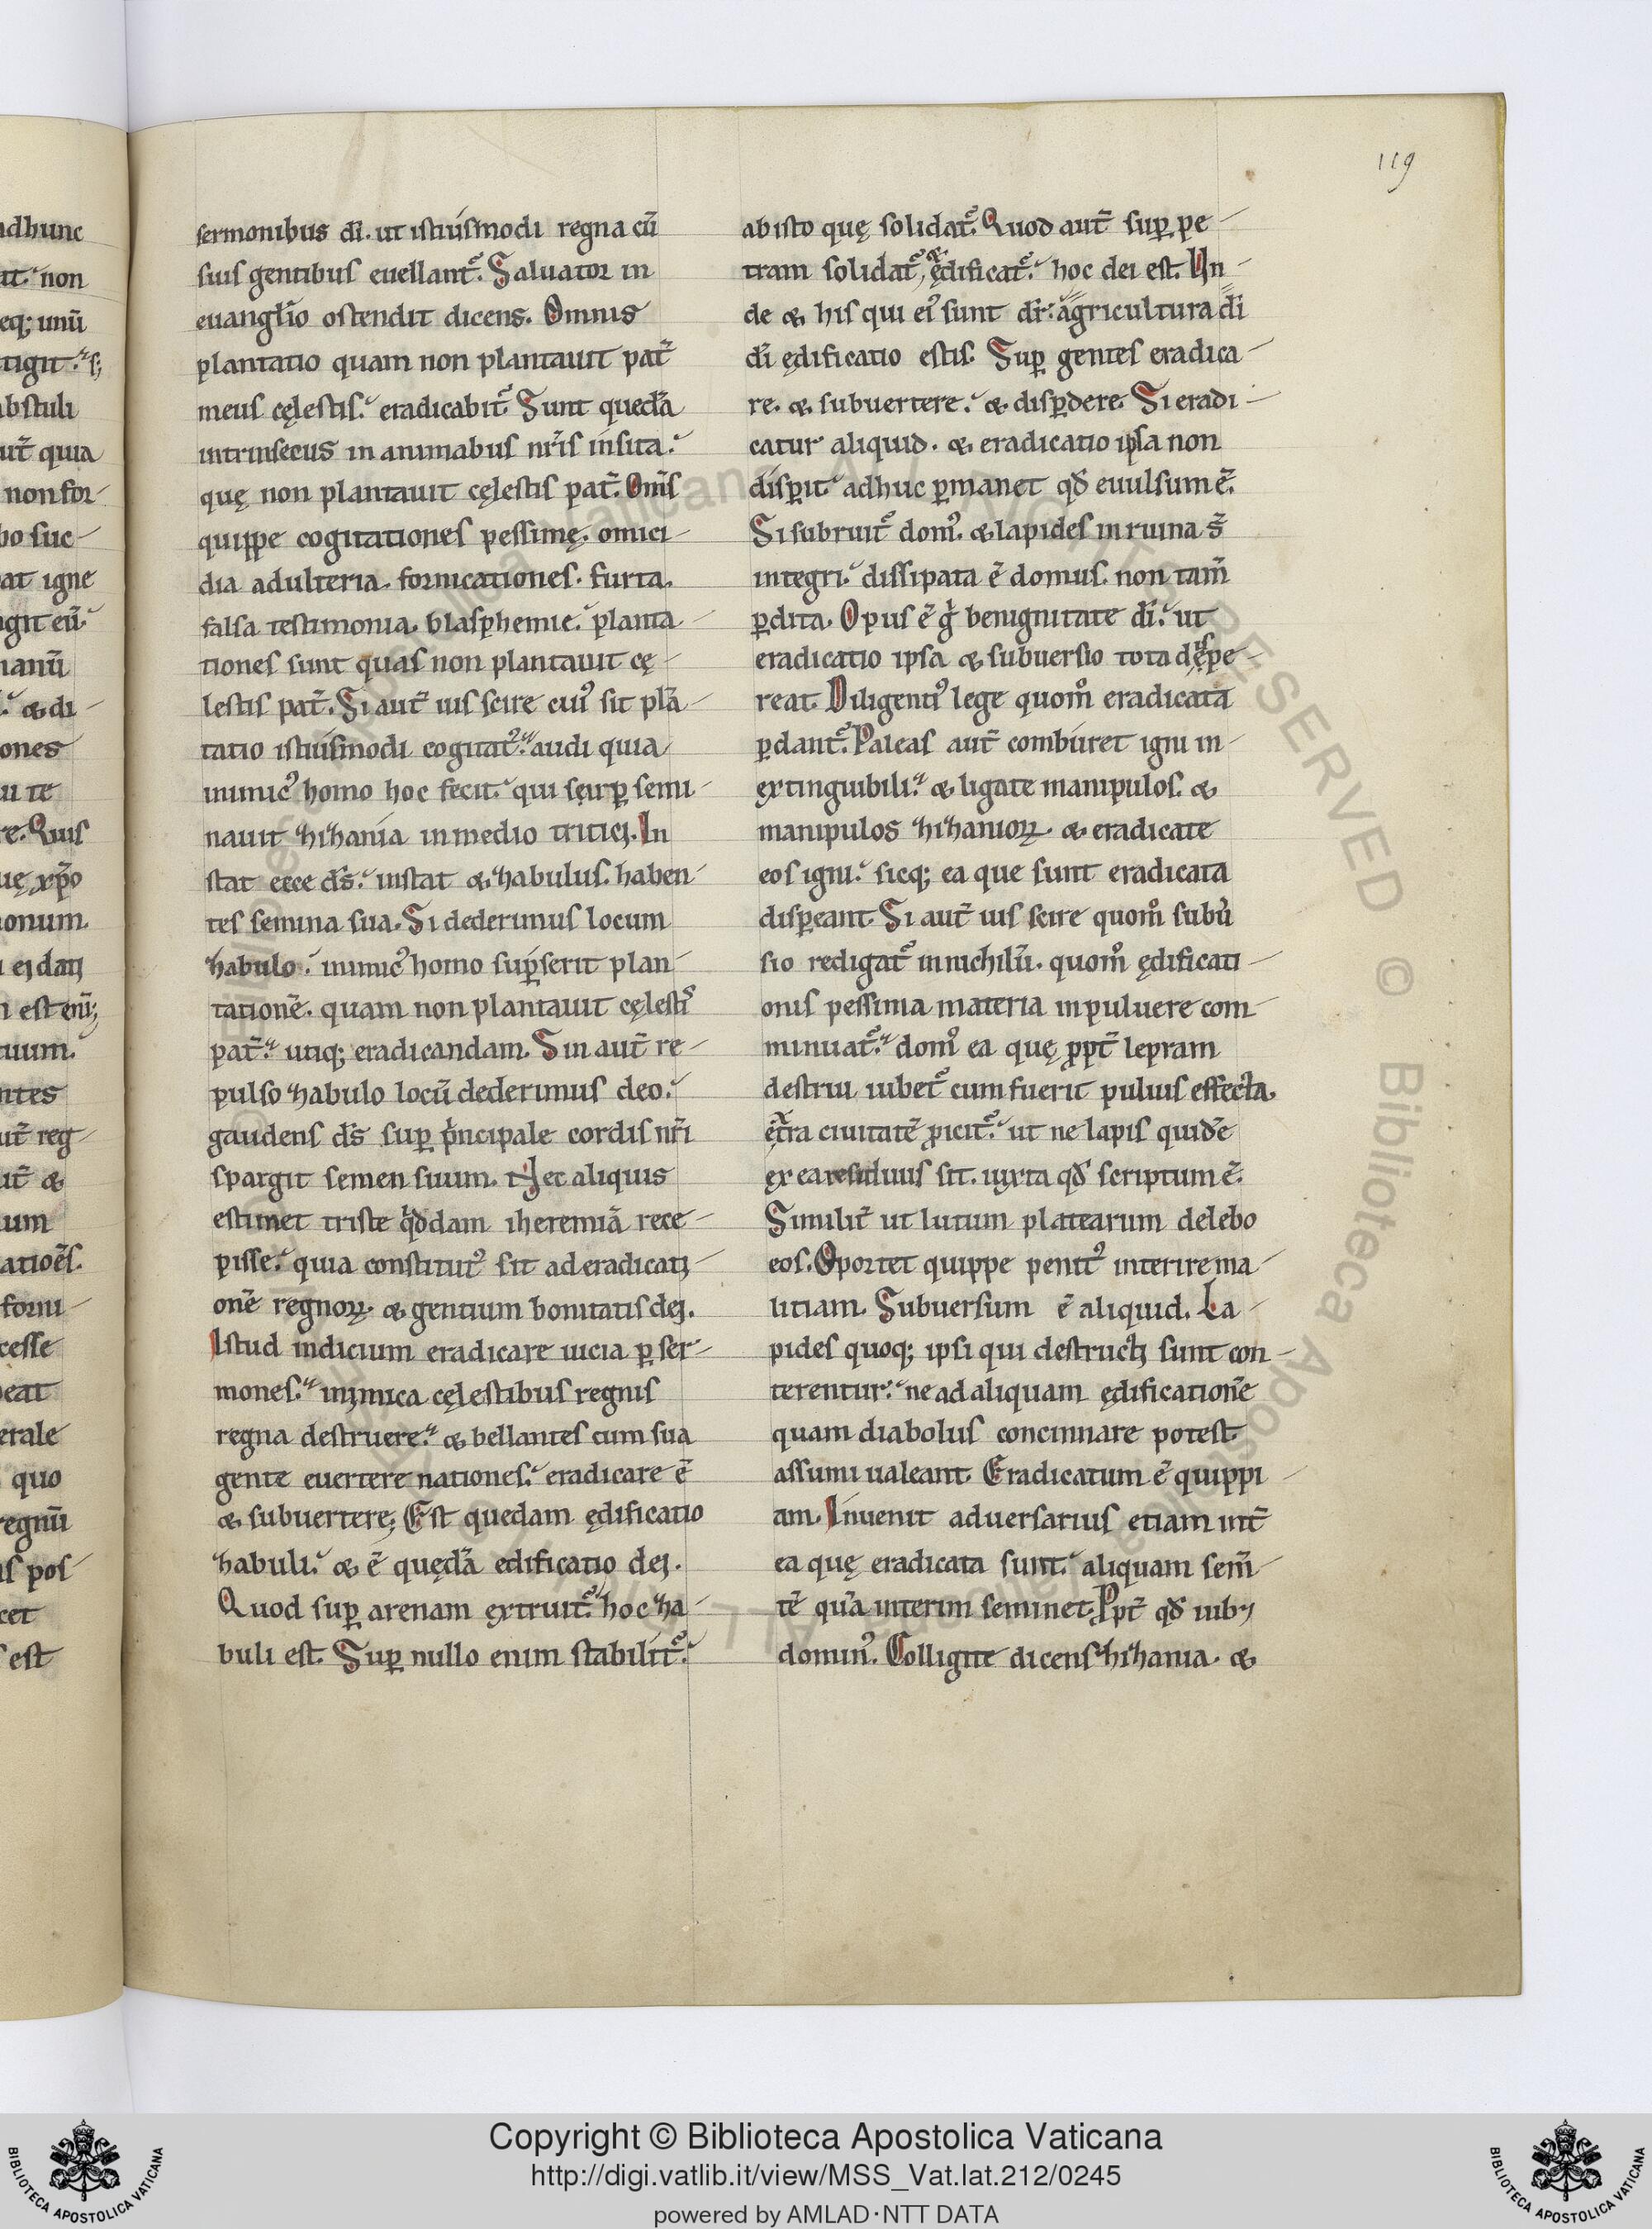 119
sermonibus dī. ut istiúsmodi regna cū
suis gentibus euellant᷑. Saluator in
euangł̄io ostendit dicens. Omnis
plantatio quam non plantauit pat̄
meus cęlestis. eradicabit᷑. Sunt quedā
intrinsecus in animabus nr̄is ínsita.
quę non plantauit cęlestis pat̄. Om̄s
quippe cogitationes pessimę. omici-
dia adulteria. fornicationes. furta.
falsa testimonia. blasphemie. planta-
tiones sunt quas non plantauit cę-
lestis pat̄. Si aut̄ uis scire cuiꝰ sit plā-
tatio istiúsmodi cogitat᷑. audi quia
inimicꝰ homo hoc fecit. qui seuꝑ semi-
nauit zizania in medio tritici. In
stat ecce ds̄. instat & zabulus. haben-
tes semina sua. Si dederimus locum
zabulo. inimicꝰ homo suꝑserit plan-
tationē. quam non plantauit cęlestis
pat̄. utiq; eradicandam. Sin aut̄ re-
pulso zabulo locū dederimus deo.
gaudens ds̄ suꝑ pͥncipale cordis nr̄i
spargit semen suum. Nec aliquis
estimet triste qͥddam iheremiā rece-
pisse. quia constitutꝰ sit ad eradicati-
onē regnoꝝ. & gentium bonitatis dei.
Istud indicium eradicare uicia ꝑ ser-
mones. inimica cęlestibus regnis
regna destruere. & bellantes cum sua
gente euertere nationes. eradicare ē
& subuertere; Est quedam ędificatio
zabuli. & ē quędā edificatio dei.
Quod suꝑ arenam extruit᷑. hoc za-
buli est. Suꝑ nullo enim stabilít᷑.
ab isto quę solidat᷑. Quod aut̄ suꝑ pe-
tram solidat᷑, & ędificat᷑. hoc dei est. Un-
de & his qui eiꝰ sunt dr̄. agricultura di
dī ędificatio estis. Suꝑ gentes eradica-
re. & subuertere. & disꝑdere. Si eradi-
catur aliquid. & eradicatio ipsa non
dísꝑit adhuc ꝑmanet qd̄ euulsum ē.
Si subruit᷑ domꝰ. & lapides in ruina s̄
integri. dissipata ē domus. non tam̄
ꝑdita. Opus ē gͥ benignitate dī. ut
eradicatio ipsa & subuersio tota dęꝰpe-
reat. Diligentiꝰ lege quom̊ eradicata
ꝑdant᷑. Paleas aut̄ combúret igni in-
extinguibili. & ligate manipulos. &
manipulos zizanioꝝ. & eradicate
eos igni. sicq; ea que sunt eradicata
disꝑeant. Si aut̄ uis scire quom̊ subu̓
sio redigat᷑ in nichilū. quom̊ ędificati-
onis pessima materia in puluere com-
minuat᷑. domꝰ ea quę ꝓpt̄ lepram
destrui iubet᷑ cum fuerit puluis effecta.
ext̃ra ciuitatē ꝓicit᷑. ut ne lapis quidē
ex ea residuus sit. iuxta qd̄ scriptum ē.
Similit̄ ut lutum platearum delebo
eos. Oportet quippe penitꝰ interire ma-
litiam. Subuersum ē aliquid. La-
pides quoq; ipsi qui destructi sunt con-
terentur. ne ad aliquam ędificationē
quam diabolus concinnare potest.
assumi ualeant. Eradicatum ē quippi-
am. Inuenit aduersarius etiam int̄
ea quę eradicata sunt. aliquam sem̄-
tē quā interim seminet. Ppt̄ qd̄ iub;
dominꝰ. Colligite dicens zizania. &
adhunc
non
eq; unū
tigit. s;
abstuli
ut̄ quia
non for-
bo suc-
at igne
agit eū.
manū
& di-
ones
te
re. Quis
uę xp̄o
onum.
est enī;
tuum.
ntes
ut̄ reg-
ut̄ &
um
atioēs.
forni-
cesse
beat
erale
quo
regnū
is pos-
cet
est
Copyright © Biblioteca Apostolica Vaticana
http://digi.vatlib.it/view/MSS_Vat.lat.212/0245
powered by AMLAD·NTT DATA
BIBLIOTECA APOSTOLICA VATICANA
BIBLIOTECA APOSTOLICA VATICANA